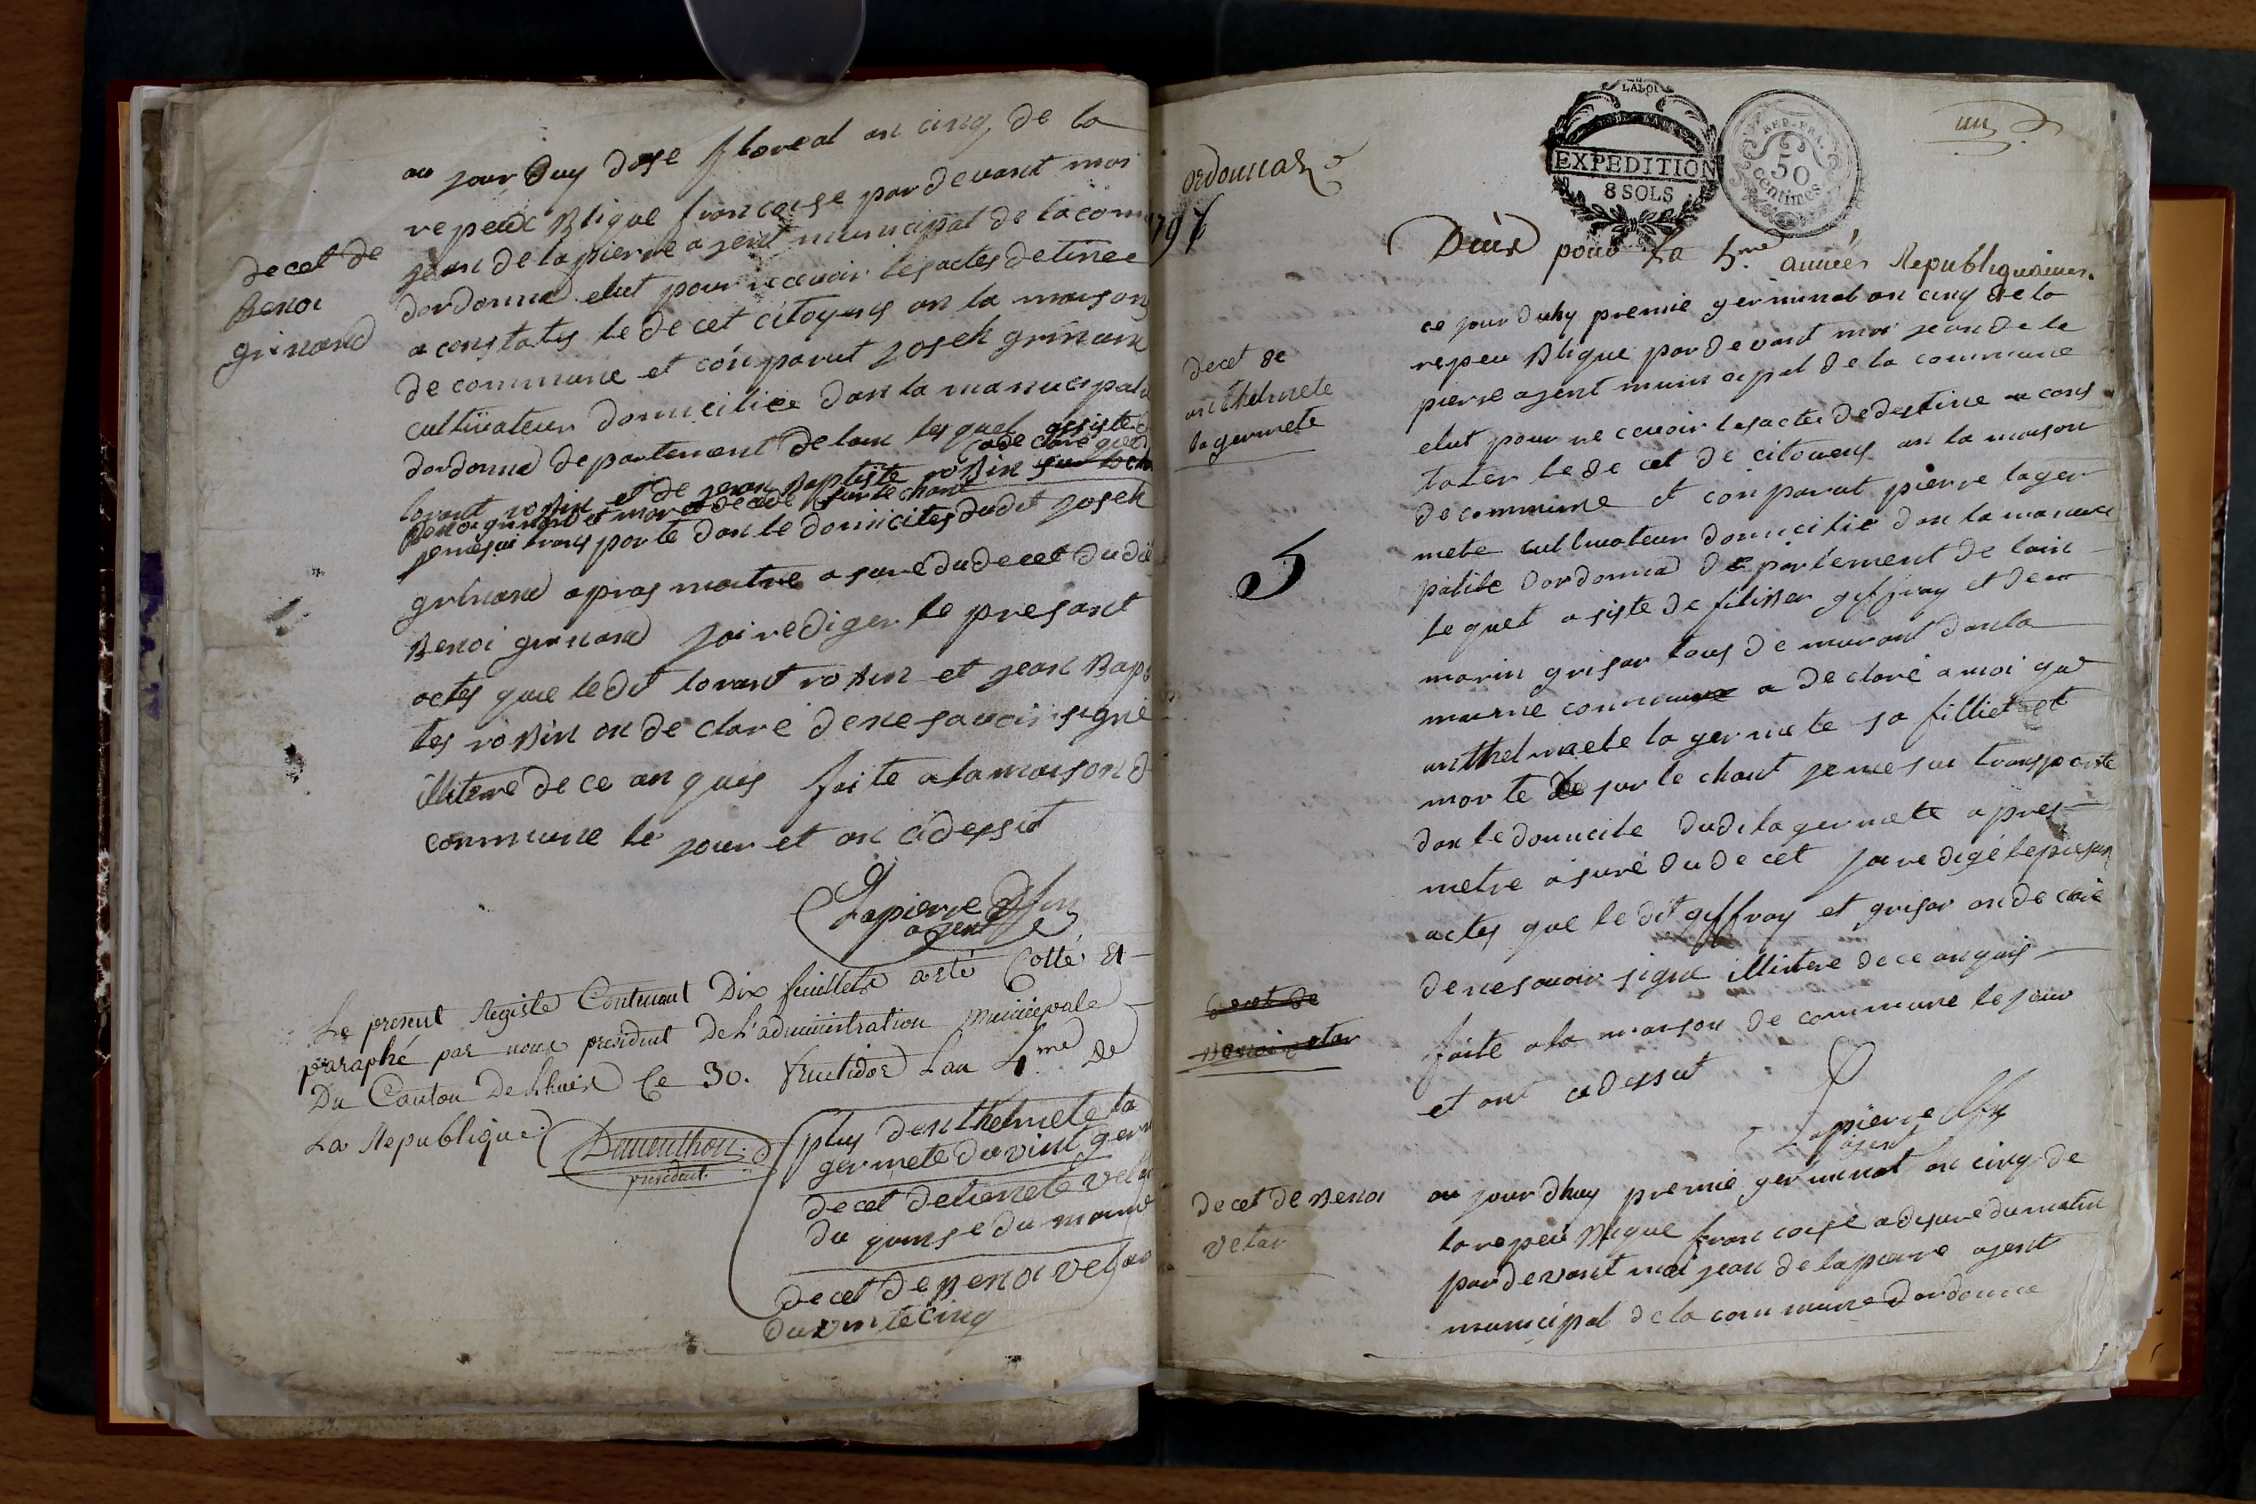 decet de
Benoi
grinand
au jour Duy dose floreal an cinq de la
repeuBlique francaise par devant moi
jean de lapierre agent municipal de la com
dordonna elut pour recevoir les actes detinee
a constates le decet citoyens an la maison
de commune et conparut josek grinand
cultivateur domicilies dan la manucipal
dordonna departement de lain lesquel assiste d
lorant roBin et de jean Baptiste roBin a declare que
Benoi grinard et mor decede sur le chant
je me sui trans porte dan le domicile dudit josek
grinand apras maitre asure du decet du dit
Benoi grinand jai rediger le presant
actes que ledit lorant roBin et jean Bapt
tes roBin on de clare de ne savoir signé
illitere de ce an quis faite a la maison d
commune le jour et an cidessut
Lapierre
agent
Le present Registe Contenant Dix feuillets a eté Cotté Et
paraphé par nous president De L'administration Municipale
Du Canton De Lhuis Ce 30. fructidor Lan 4.me De
La Republique.
Dumenthon
president
plus danthelmete la
germete du vint germ
decet de
du quinse du
decet de Benoi vetar
du vinte cinq
LA LOI
EXPEDITION
8 SOLS
REP. FRA.
50
centimes
un
ordonnaz
797
Decès pour La 5.me année Republiquaine.
decet de
anthelmete
lagermete
5
ce jour duhy premie germinal an cinq de la
repeu Blique par devant moi jean de la
pierre agent municipal de la commune
elut pour recevoir les actes de destine a cons
tater le de cet de citoyens an la maison
de commune et conparut pierre lager
mete cultivateur domicilie dan la manuci
palite dordonna departement de lain
lequel asiste de filiBer geffray et de
marin grisar tous demurant dan la
maime commune a de claré a moi que
anthelmete la germete sa filliet et
morte sur le chant je me sui transporte
dan le domicile dudi lagermete apres
metre asuré du de cet jai redigé le presan
actes que le dit geffray et grisar on de clare
de ne savoir signe illitere de ce anquis
faite a la maison de commune le jour
et ant cidessut
Lapierre
agent
decet de
Benoi vetar
decet de Benoi
vetar
au jour dhuy premie germinal an cinq de
la repeu Blique fran caise a dis ure du matin
par devant moi jean de lapierre agent
municipal de la commune dordonne